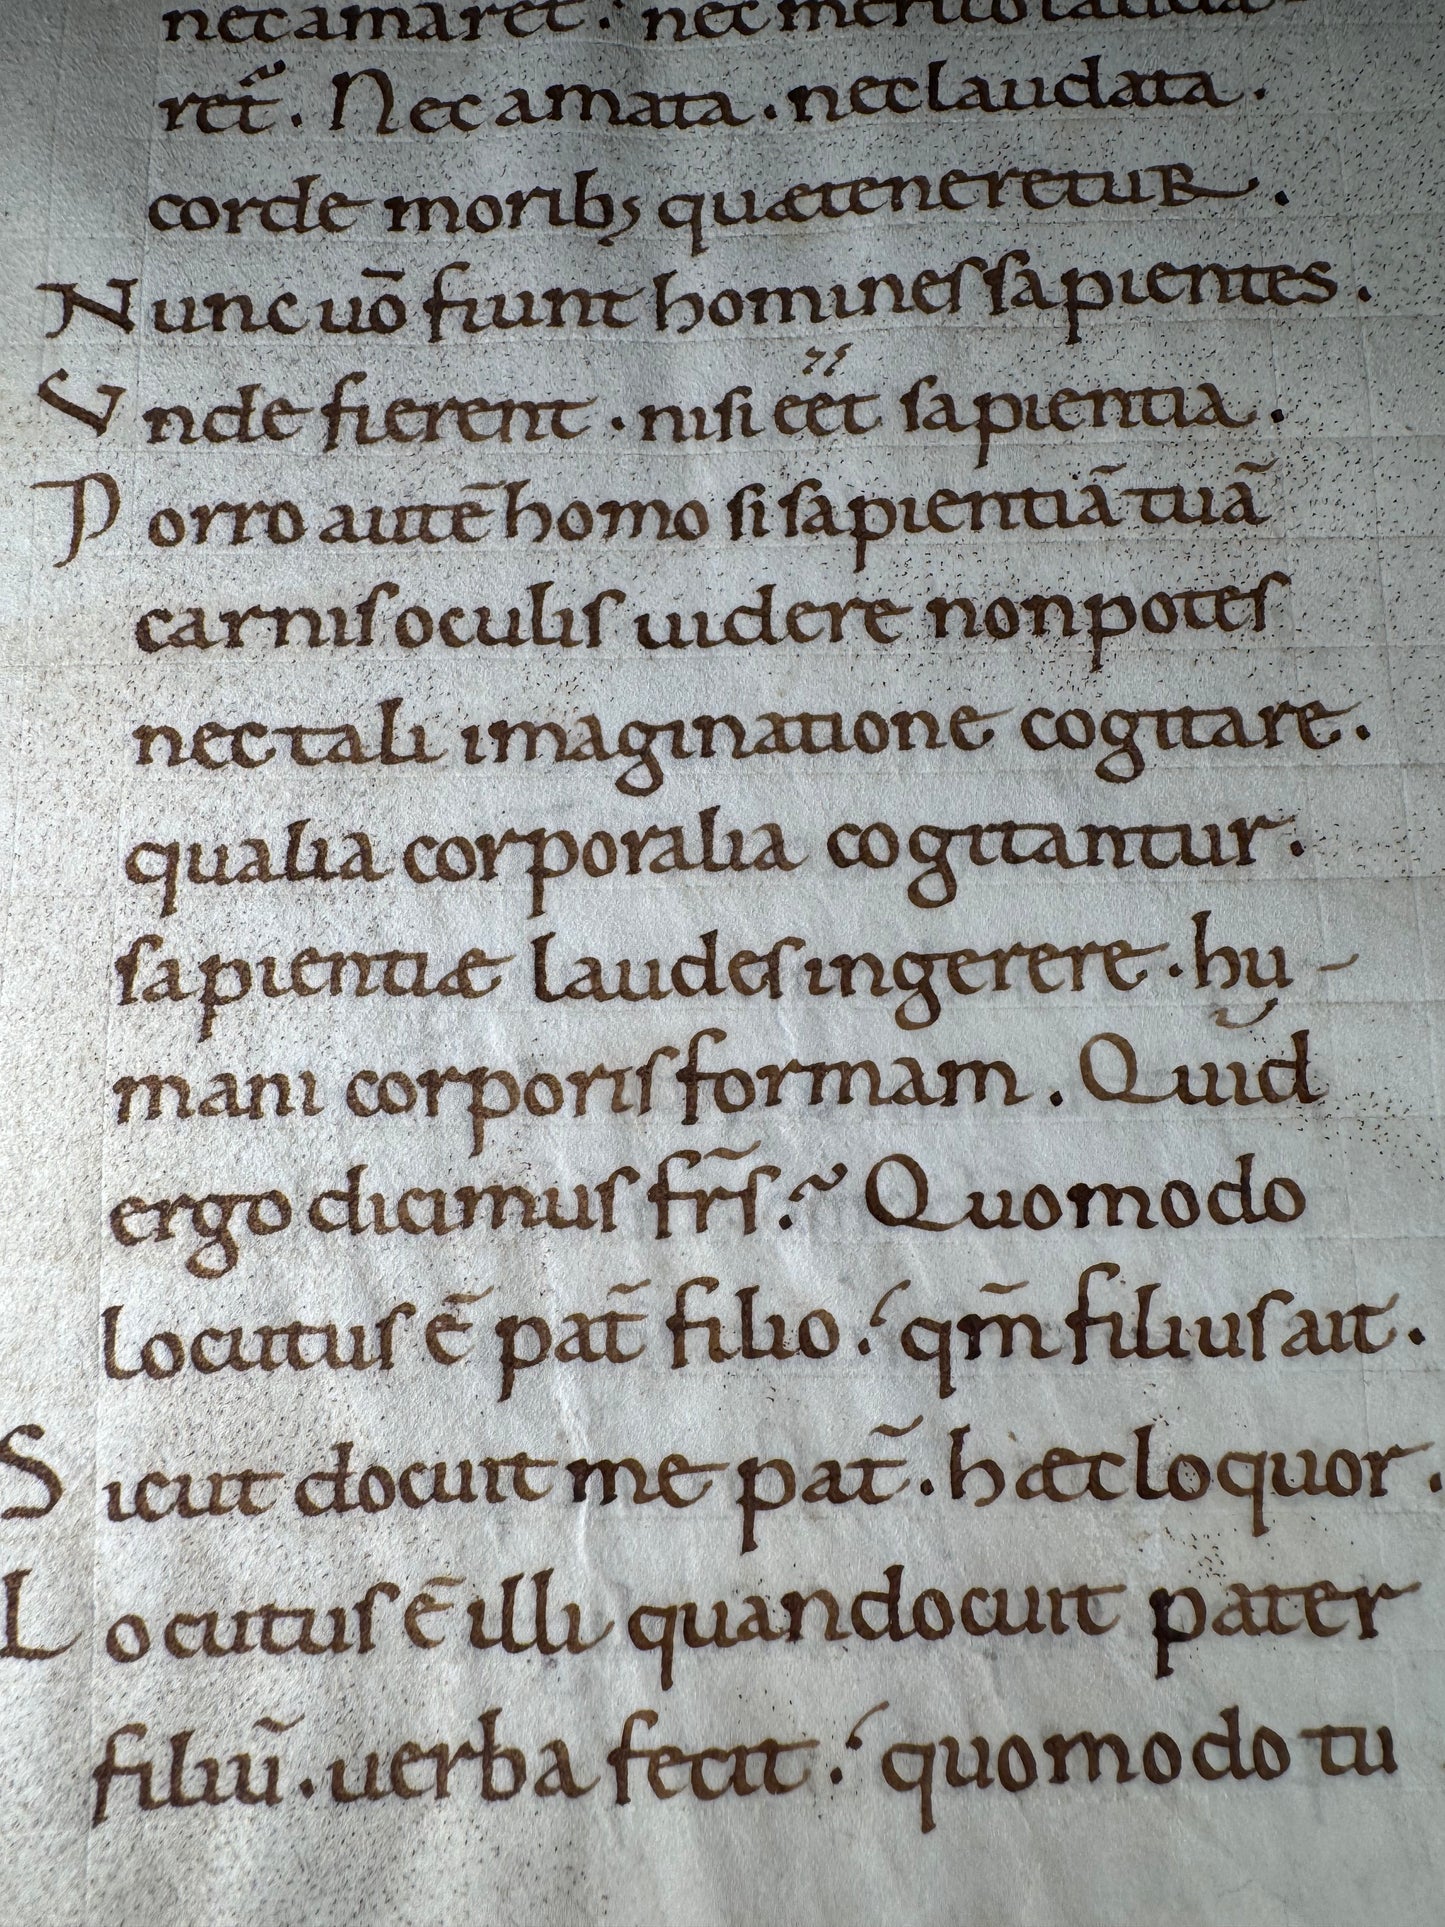 nec amaret. nec merito lauda-
ret̃. Nec amata. nec laudata.
corde moribꝫ quæ teneretur.
Nunc uō fiunt homines sapientes.
Vnde fierent. nisi eēt sapientia.
Porro autē homo si sapientiā tuā
carnis oculis uidere non potes
nec tali imaginatione cogitare.
qualia corporalia cogitantur.
sapientiæ laudes ingerere. hu-
mani corporis formam. Quid
ergo dicimus fr̃s? Quomodo
locutus ē pat̃ filio? qm̃ filius ait.
Sicut docuit me pat̃. hæc loquor.
Locutus ē illi quando docuit pater
filiū. uerba fecit? quomodo tu